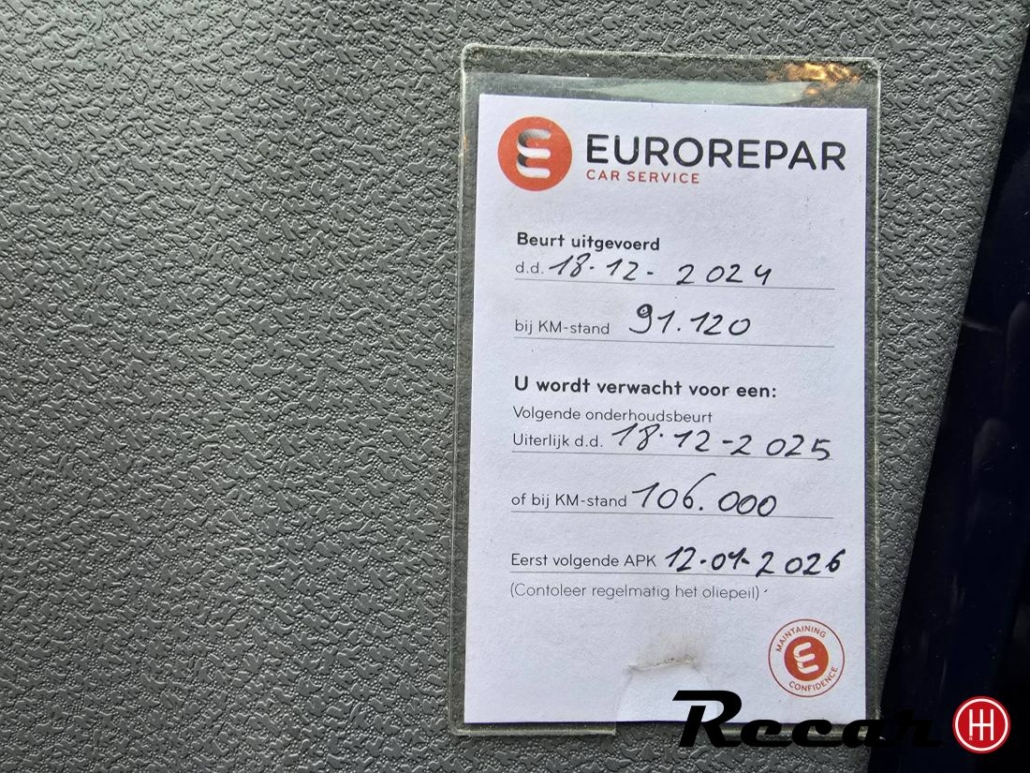 EUROREPAR
CAR SERVICE
Beurt uitgevoerd
d.d. 18-12- 2024
bij KM-stand 91.120
U wordt verwacht voor een:
Volgende onderhoudsbeurt
Uiterlijk d.d. 18-12-2025
of bij KM-stand 106.000
Eerst volgende APK 12-01-2026
(Contoleer regelmatig het oliepeil)
MAINTAINING
CONFIDENCE
Recar